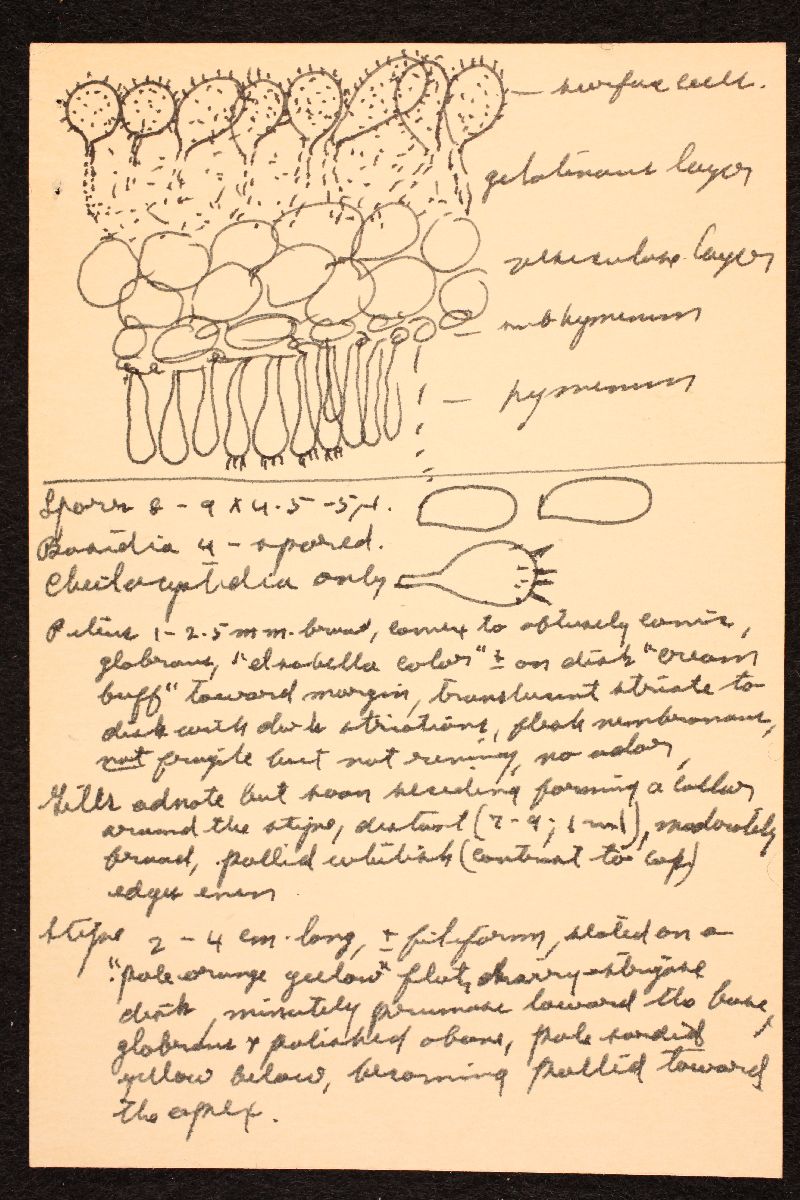 surface cells.
gelatinous layer
vesiculose layer
subhymenium
hymenium
Spores 8-9 x 4.5-5μ.
Basidia 4-spored.
Cheilocystidia only
Pileus 1-2.5 mm. broad, convex to obtusely conic,
glabrous, "Isabella color" ± on disk "cream
buff" toward margin, translucent striate to
disk with dark striations, flesh membranous,
not fragile but not reviving, no odor,
Gills adnate but soon seceding forming a collar
around the stipe, distant (7-9; ), moderately
broad, pallid whitish (contrast to cap)
edges even
Stipe 2-4 cm. long, ± filiform, seated on a
"pale orange yellow" flat, strigose
disk, minutely pruinose toward the base,
glabrous & polished above, pale sordid
yellow below, becoming pallid toward
the apex.